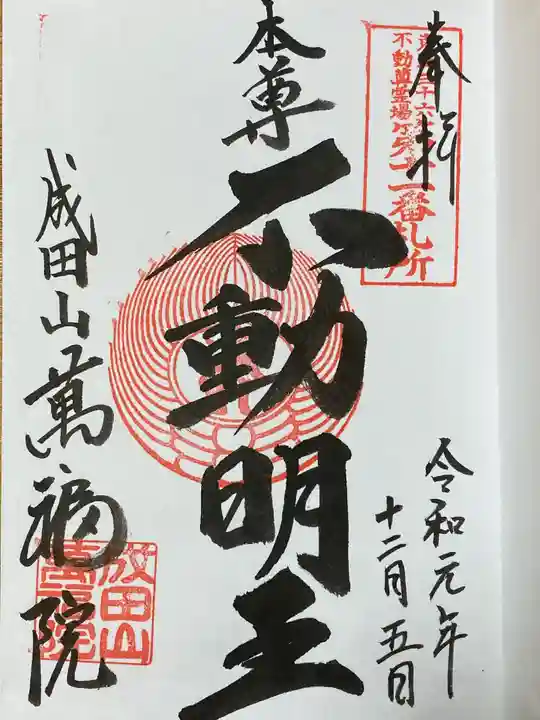 奉拝
三十六
不動尊霊場
第十二番札所
本尊
不動明王
令和元年
十二月五日
成田山萬福院
成田山
萬福院